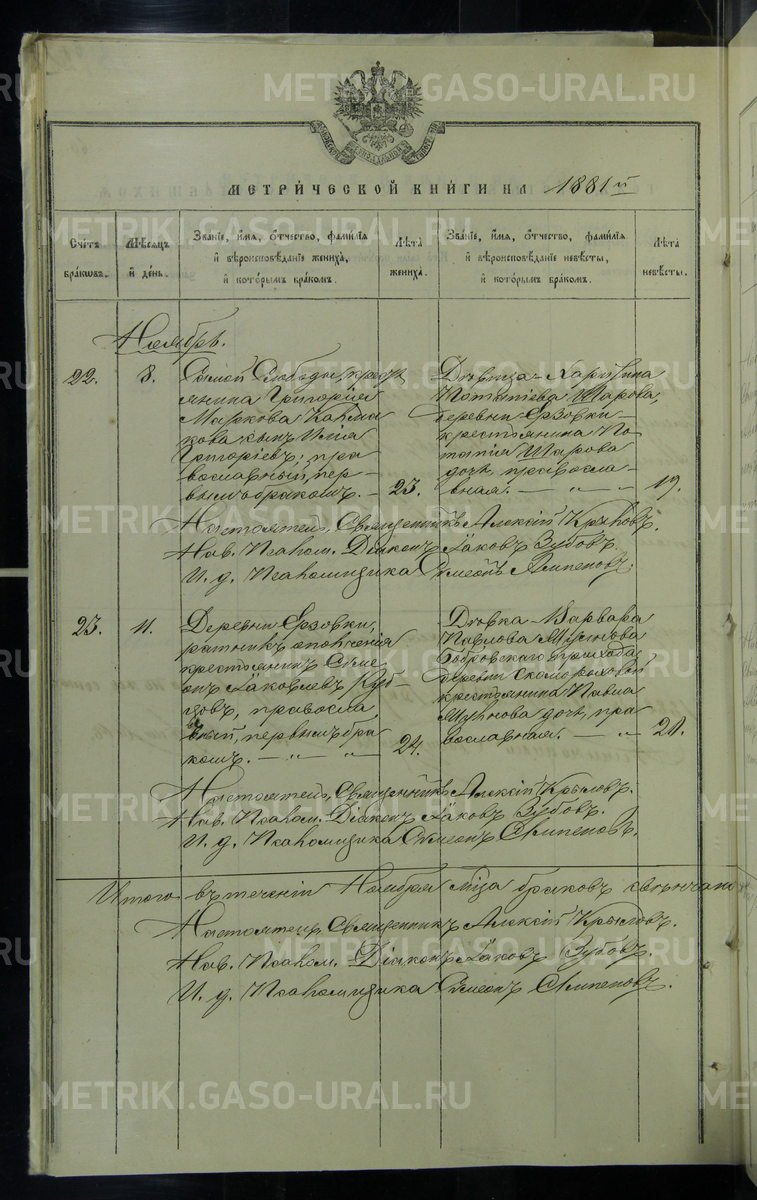 METRIKI.GASO-URAL.RU
МЕТРИЧЕСКОЙ КНИГИ НА 1881й
Счетъ браковъ.
Мѣсяцъ и день.
Званіе, имя, отчество, фамилія и вѣроисповѣданіе жениха, и которымъ бракомъ.
Лѣта жениха.
Званіе, имя, отчество, фамилія и вѣроисповѣданіе невѣсты, и которымъ бракомъ.
Лѣта невѣсты.
Ноябрь.
22.
8.
Слободы крест
янина Григорія
Маркова
сынъ Илія
Григоріевъ, пра
вославный, пер
вымъ бракомъ.
23.
Дѣвица
Шарова,
деревни Ерзовки
крестьянина По
тапія Шарова
дочь, правосла
вная.
19.
Настоятель, Священникъ Алексій Крыловъ.
Нав. Псалом. Діаконъ Іаковъ Зубовъ.
И. д. Псаломщика Симеонъ
23.
11.
Деревни Ерзовки,
ратникъ ополченія
крестьянинъ Симе
онъ Іаковлевъ
правосла
вный, первымъ бра
комъ.
24.
Дѣвка Варвара
Павлова
Бобровскаго прихода
деревни
крестьянина Павла
дочь, пра
вославная.
20.
Настоятель, Священникъ Алексій Крыловъ.
Нав. Псалом. Діаконъ Іаковъ Зубовъ.
И. д. Псаломщика Симеонъ
Итого въ теченіи Ноября м‑ца браковъ свѣнчано
Настоятель, Священникъ Алексій Крыловъ.
Нав. Псалом. Діаконъ Іаковъ Зубовъ.
И. д. Псаломщика Симеонъ